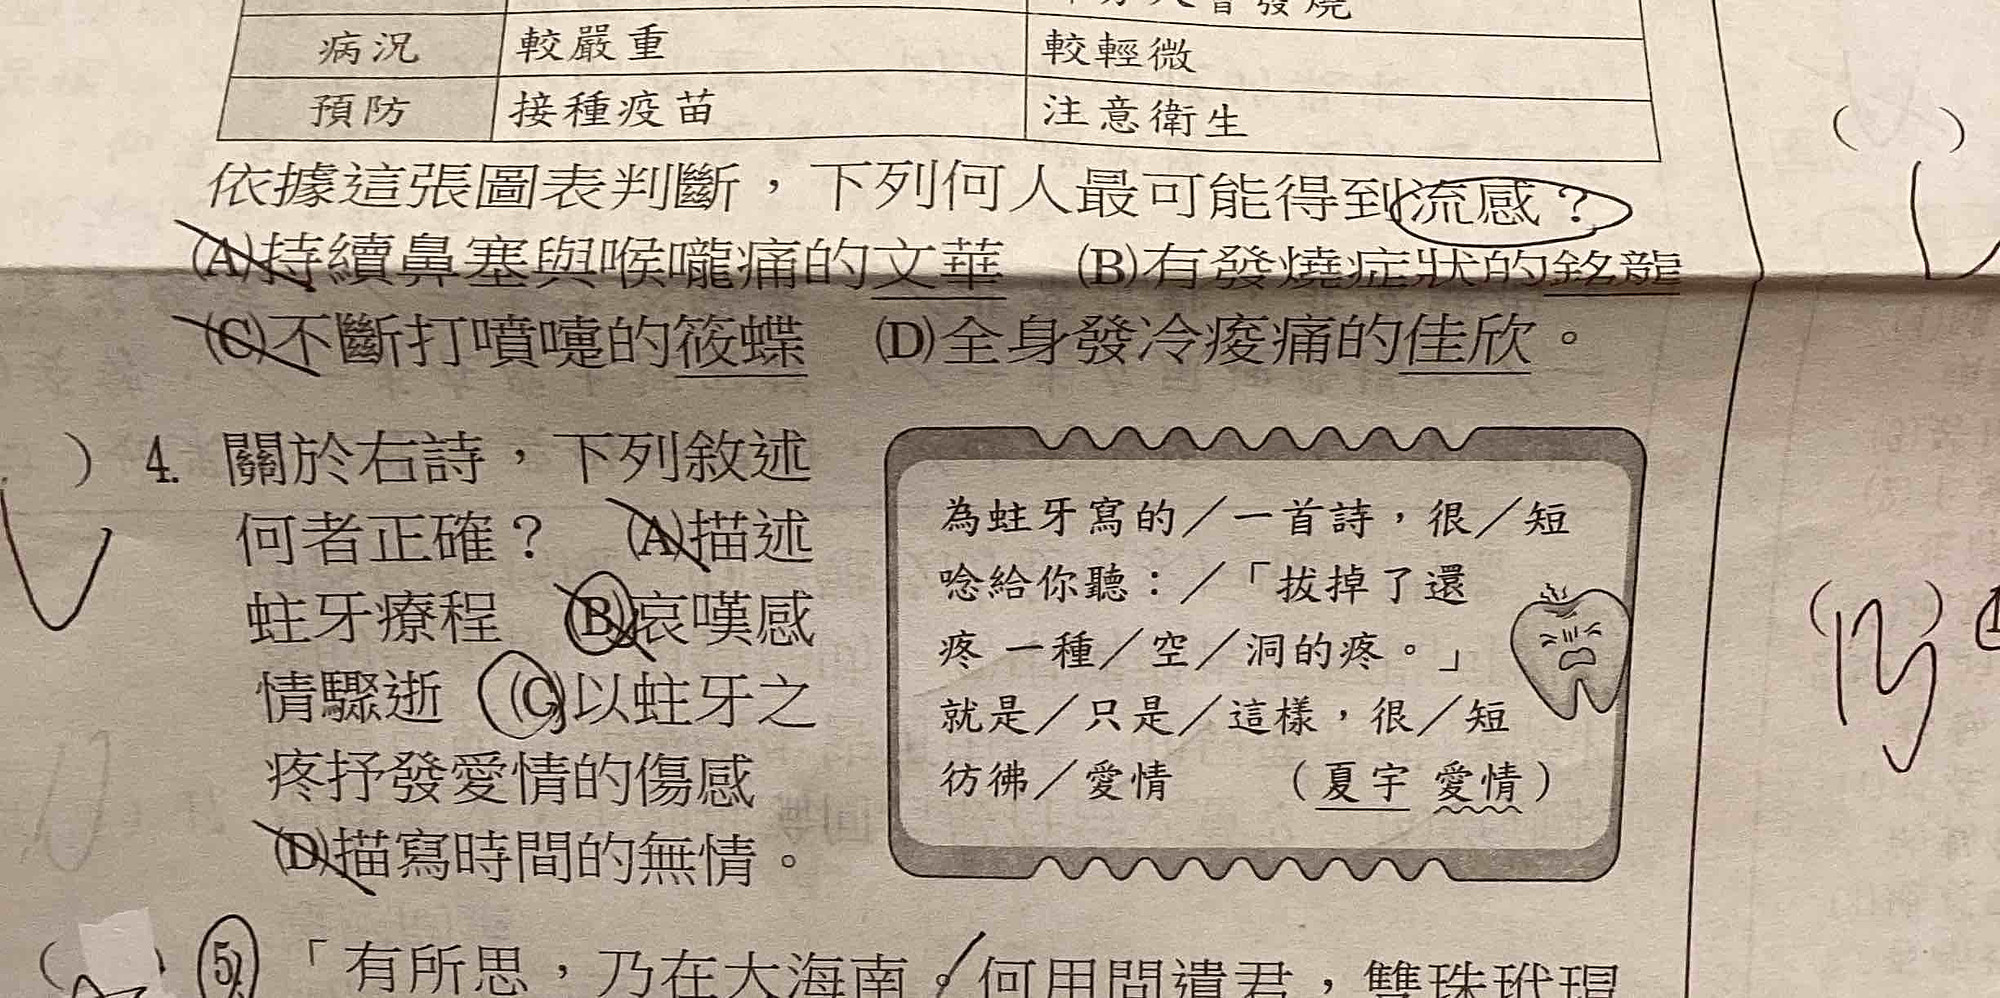 病況 較嚴重 較輕微
預防 接種疫苗 注意衛生
依據這張圖表判斷，下列何人最可能得到流感？
(A)持續鼻塞與喉嚨痛的文華 (B)有發燒症狀的銘龍
(C)不斷打噴嚏的筱蝶 (D)全身發冷痠痛的佳欣。
) 4. 關於右詩，下列敘述
何者正確？ (A)描述
蛀牙療程 (B)哀嘆感
情驟逝 (C)以蛀牙之
疼抒發愛情的傷感
(D)描寫時間的無情。
為蛀牙寫的／一首詩，很／短
唸給你聽：／「拔掉了還
疼 一種／空／洞的疼。」
就是／只是／這樣，很／短
彷彿／愛情 （夏宇 愛情）
5. 「有所思，乃在大海南。何用問遺君，雙珠玳瑁